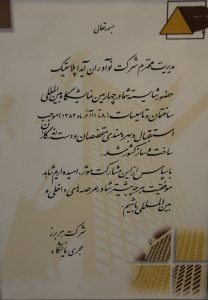 بسمه تعالی
مدیریت محترم شرکت نوآوران آیدا پلاستیک
حضور شایسته شما در چهارمین نمایشگاه بین المللی
ساختمان و تاسیسات (۸ تا ۱۱ آذرماه ۱۳۸۲) موجب
استقبال و بهره مندی متخصصان و دست اندرکاران
ساخت و ساز کشور شد.
با سپاس از این مشارکت موثر، امیدواریم شاهد
موفقیت هر چه بیشتر شما در عرصه های داخلی و
بین المللی باشیم.
شرکت هربرز
مجری نمایشگاه